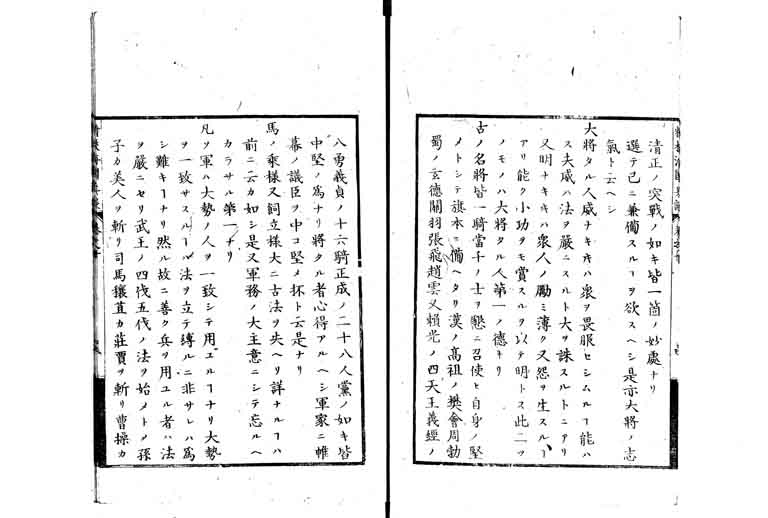 清正ノ突戰ノ如キ皆一箇ノ妙處ナリ
選テ己ニ兼備スルヿヲ欲スヘシ是亦大將ノ志
氣ト云ヘシ
大將タル人威ナキ𬼀ハ衆ヲ畏服セシムルヿ能ハ
ス夫威ハ法ヲ嚴ニスルト大ヲ誅スルトニアリ
又明ナキ𬼀ハ衆人ノ勵ミ薄ク又怨ヲ生スルヿ
アリ能ク小功ヲモ賞スルヲ以テ明トス此二ツ
ノモノハ大將タル人第一ノ德ナリ
古ノ名將皆一騎當千ノ士ヲ懇ニ召使ヒ自身ノ堅
メトシテ旗本ニ備ヘタリ漢ノ高祖ノ樊會周勃
蜀ノ玄德關羽張飛趙雲又賴光ノ四天王義經ノ
八勇義貞ノ十六騎正成ノ二十八人黨ノ如キ皆
中堅ノ爲ナリ將タル者心得アルヘシ軍家ニ帷
幕ノ議臣ヲ中コ堅メ抔ト云是ナリ
馬ノ乘樣又飼立樣大ニ古法ヲ失ヘリ詳ナルヿハ
前ニ云カ如シ是又軍務ノ大主意ニシテ忘ルヘ
カラサル第一ナリ
凡ソ軍ハ大勢ノ人ヲ一致シテ用ユルヿナリ大勢
ヲ一致サスルヿ法ヲ立テ縛ルニ非サレハ爲
シ難キヿナリ然ル故ニ善ク兵ヲ用ユル者ハ法
ヲ嚴ニセリ武王ノ四伐五伐ノ法ヲ始メトメ孫
子カ美人ヲ斬リ司馬穰苴カ莊賈ヲ斬リ曹操カ